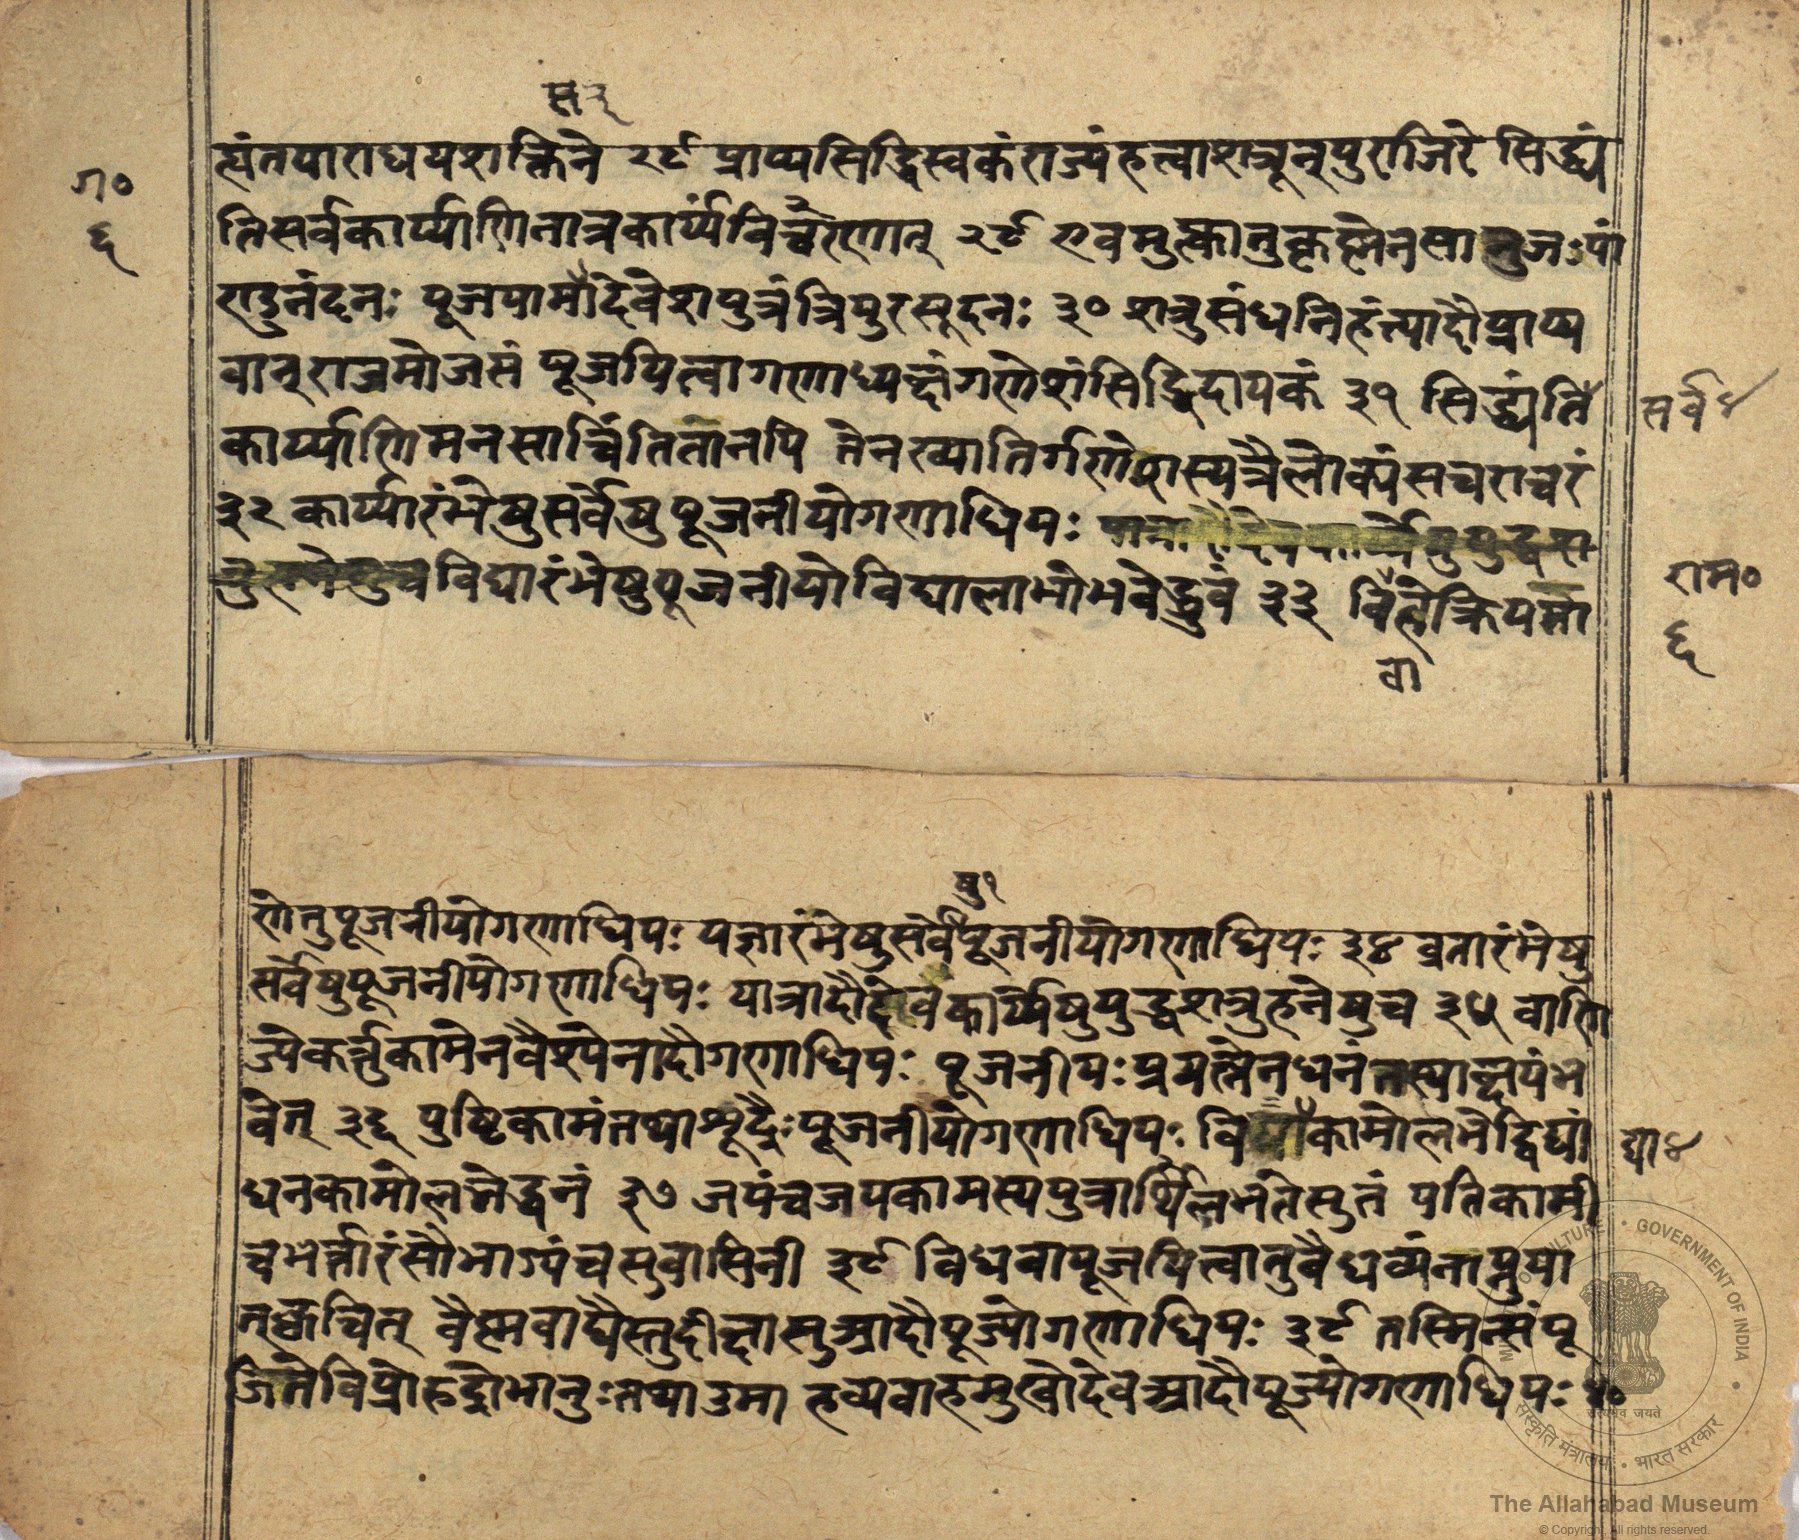 स३
त्यंतयाराधयशक्तिने २८ प्राप्यसिद्धिस्वकंराज्यंहत्वाशत्रूनूपुराजिरे सिद्ध्यं
ग०
६
तिसर्वकार्य्याणिनात्रकार्य्यंविचारणात् २९ एवमुत्कातुकृष्णेनसानुजःपां
२
डुनंदनः पूजयामासदेवेशपुत्रंत्रिपुरसूदनः ३० शत्रुसंघनिहंत्यादौप्राप्य
वान्राजमोजसं पूजयित्वागणाध्यक्षंगणेशंसिद्धिदायकं ३१ सिद्ध्यंति
सर्व४
कार्य्याणिमनसाचिंतितानपि तेनख्यातिर्गणेशस्यत्रैलोक्यंसचराचरं
३२ कार्य्यारंभेषुसर्वेषुपूजनीयोगणाधिपः
विद्यारंभेषुपूजनीयोविद्यालाभोभवेद्ध्रुवं ३३
राम०
६
वा
षु१
णेतुपूजनीयोगणाधिपः यज्ञारंभेषुसर्वेपूजनीयोगणाधिपः ३४ व्रतारंभेषु
सर्वेषुपूजनीयोगणाधिपः यात्रादौदेवकार्य्येषुयुद्धशत्रुहनेषुच ३५ वाणि
ज्येकर्त्तुकामेनवैश्येनादौगणाधिपः पूजनीयःप्रयत्नेनधनंतस्याक्षयंभ
वेत् ३६ पुष्टिकामंतथाशूद्रैःपूजनीयोगणाधिपः विद्याकामोलभेद्विद्यां
द्या४
धनकामोलभेद्धनं ३७ जयंचजयकामस्यपुत्रार्थिलभंतेसुतं पतिकामी
चभर्त्तारंसौभाग्यंचसुवासिनी ३८ विधवापूजयित्वातुवैधव्यंनाप्नुया
त्क्वचित् वैष्णवाद्यैस्तुदीक्षासुआदौपूज्योगणाधिपः ३९ तस्मिन्संपू
जितेविप्रोरुद्रोभानुःतथाउमा हव्यवाहमुखोदेवआदौपूज्योगणाधिपः ४०
GOVERNMENT OF INDIA
सत्यमेव जयते
संस्कृति मंत्रालय • भारत सरकार
The Allahabad Museum
© Copyright. All rights reserved.